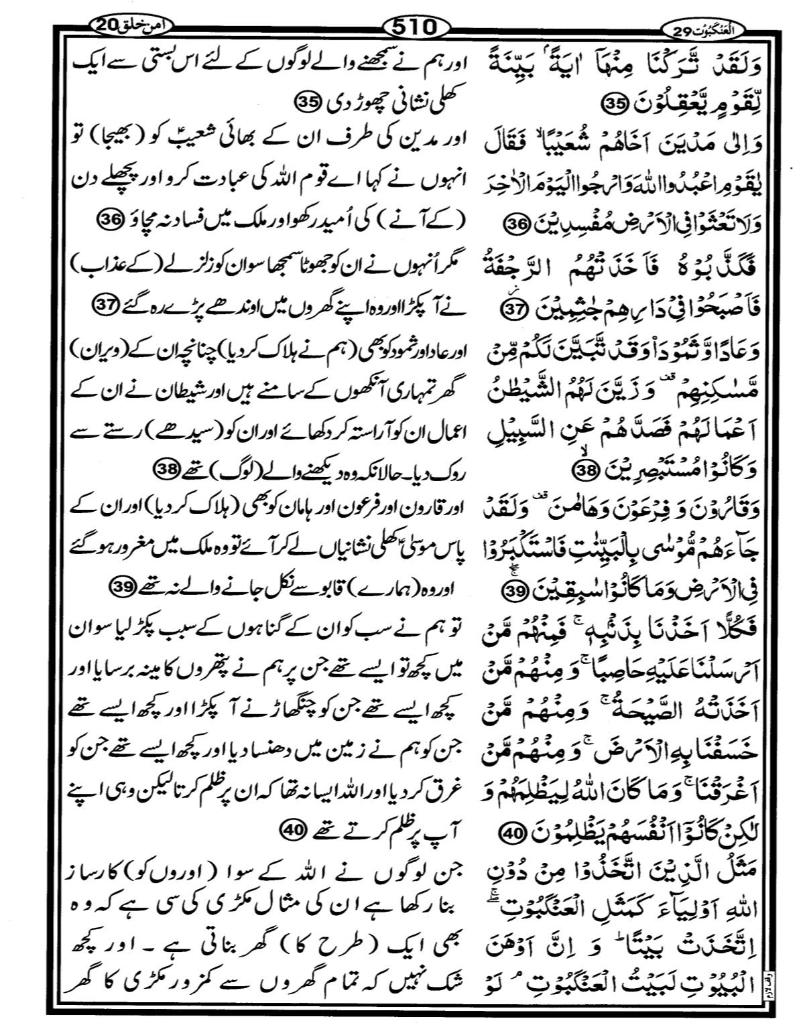 العنکبوت 29
510
امن خلق 20
وَلَقَدۡ تَّرَكۡنَا مِنۡهَاۤ اٰيَةًۢ بَيِّنَةً
لِّقَوۡمٍ يَّعۡقِلُوۡنَ 35
وَاِلٰى مَدۡيَنَ اَخَاهُمۡ شُعَيۡبًا ۙ فَقَالَ
يٰقَوۡمِ اعۡبُدُوا اللّٰهَ وَارۡجُوا الۡيَوۡمَ الۡاٰخِرَ
وَلَا تَعۡثَوۡا فِى الۡاَرۡضِ مُفۡسِدِيۡنَ 36
فَكَذَّبُوۡهُ فَاَخَذَتۡهُمُ الرَّجۡفَةُ
فَاَصۡبَحُوۡا فِىۡ دَارِهِمۡ جٰثِمِيۡنَ 37
وَعَادًا وَّثَمُوۡدَا۟ وَقَدۡ تَّبَيَّنَ لَكُمۡ مِّنۡ
مَّسٰكِنِهِمۡ ۖ وَزَيَّنَ لَهُمُ الشَّيۡطٰنُ
اَعۡمَالَهُمۡ فَصَدَّهُمۡ عَنِ السَّبِيۡلِ
وَكَانُوۡا مُسۡتَبۡصِرِيۡنَ ۙ 38
وَقَارُوۡنَ وَ فِرۡعَوۡنَ وَهَامٰنَ ۖ وَلَقَدۡ
جَآءَهُمۡ مُّوۡسٰى بِالۡبَيِّنٰتِ فَاسۡتَكۡبَرُوۡا
فِى الۡاَرۡضِ وَمَا كَانُوۡا سٰبِقِيۡنَ 39
فَكُلًّا اَخَذۡنَا بِذَنۡۢبِهٖ ۚ فَمِنۡهُمۡ مَّنۡ
اَرۡسَلۡنَا عَلَيۡهِ حَاصِبًا ۚ وَمِنۡهُمۡ مَّنۡ
اَخَذَتۡهُ الصَّيۡحَةُ ۚ وَمِنۡهُمۡ مَّنۡ
خَسَفۡنَا بِهِ الۡاَرۡضَ ۚ وَمِنۡهُمۡ مَّنۡ
اَغۡرَقۡنَا ۚ وَمَا كَانَ اللّٰهُ لِيَظۡلِمَهُمۡ وَ
لٰكِنۡ كَانُوۡۤا اَنۡفُسَهُمۡ يَظۡلِمُوۡنَ 40
مَثَلُ الَّذِيۡنَ اتَّخَذُوۡا مِنۡ دُوۡنِ
اللّٰهِ اَوۡلِيَآءَ كَمَثَلِ الۡعَنۡكَبُوۡتِ ۚ
اِتَّخَذَتۡ بَيۡتًا ؕ وَ اِنَّ اَوۡهَنَ
الۡبُيُوۡتِ لَبَيۡتُ الۡعَنۡكَبُوۡتِ ۘ لَوۡ
وقف لازم
اور ہم نے سمجھنے والے لوگوں کے لئے اس بستی سے ایک
کھلی نشانی چھوڑ دی 35
اور مدین کی طرف ان کے بھائی شعیبؑ کو (بھیجا) تو
انہوں نے کہا اے قوم اللہ کی عبادت کرو اور پچھلے دن
(کے آنے) کی اُمید رکھو اور ملک میں فساد نہ مچاؤ 36
مگر اُنہوں نے ان کو جھوٹا سمجھا سو ان کو زلزلے (کے عذاب)
نے آ پکڑا اور وہ اپنے گھروں میں اوندھے پڑے رہ گئے 37
اور عاد اور ثمود کو بھی (ہم نے ہلاک کر دیا) چنانچہ ان کے (ویران)
گھر تمہاری آنکھوں کے سامنے ہیں اور شیطان نے ان کے
اعمال ان کو آراستہ کر دکھائے اور ان کو (سیدھے) رستے سے
روک دیا۔ حالانکہ وہ دیکھنے والے (لوگ) تھے 38
اور قارون اور فرعون اور ہامان کو بھی (ہلاک کر دیا) اور ان کے
پاس موسیٰؑ کھلی نشانیاں لے کر آئے تو وہ ملک میں مغرور ہو گئے
اور وہ (ہمارے) قابو سے نکل جانے والے نہ تھے 39
تو ہم نے سب کو ان کے گناہوں کے سبب پکڑ لیا سو ان
میں کچھ تو ایسے تھے جن پر ہم نے پتھروں کا مینہ برسایا اور
کچھ ایسے تھے جن کو چنگھاڑ نے آ پکڑا اور کچھ ایسے تھے
جن کو ہم نے زمین میں دھنسا دیا اور کچھ ایسے تھے جن کو
غرق کر دیا اور اللہ ایسا نہ تھا کہ ان پر ظلم کرتا لیکن وہی اپنے
آپ پر ظلم کرتے تھے 40
جن لوگوں نے اللہ کے سوا (اوروں کو) کارساز
بنا رکھا ہے ان کی مثال مکڑی کی سی ہے کہ وہ
بھی ایک (طرح کا) گھر بناتی ہے ۔ اور کچھ
شک نہیں کہ تمام گھروں سے کمزور مکڑی کا گھر